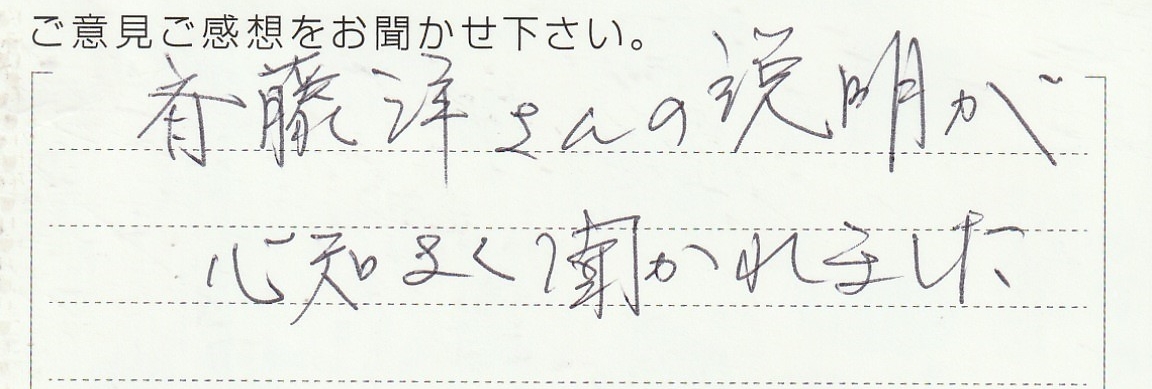 ご意見ご感想をお聞かせ下さい。
斉藤洋さんの説明が
心知よく聞かれました